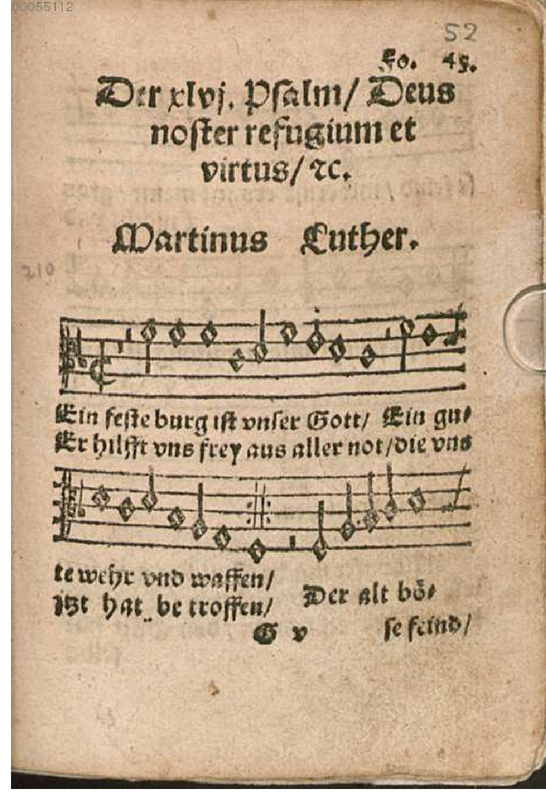 00055112
52
Fo. 45.
Der xlvj. Psalm/ Deus
noster refugium et
virtus/ ⁊c.
Martinus Luther.
210
Ein feste burg ist vnser Gott/ Ein gu⸗
Er hilfft vns frey aus aller not/die vns
te wehr vnd waffen/
itzt hat be troffen/
Der alt bö⸗
se feind/
G v